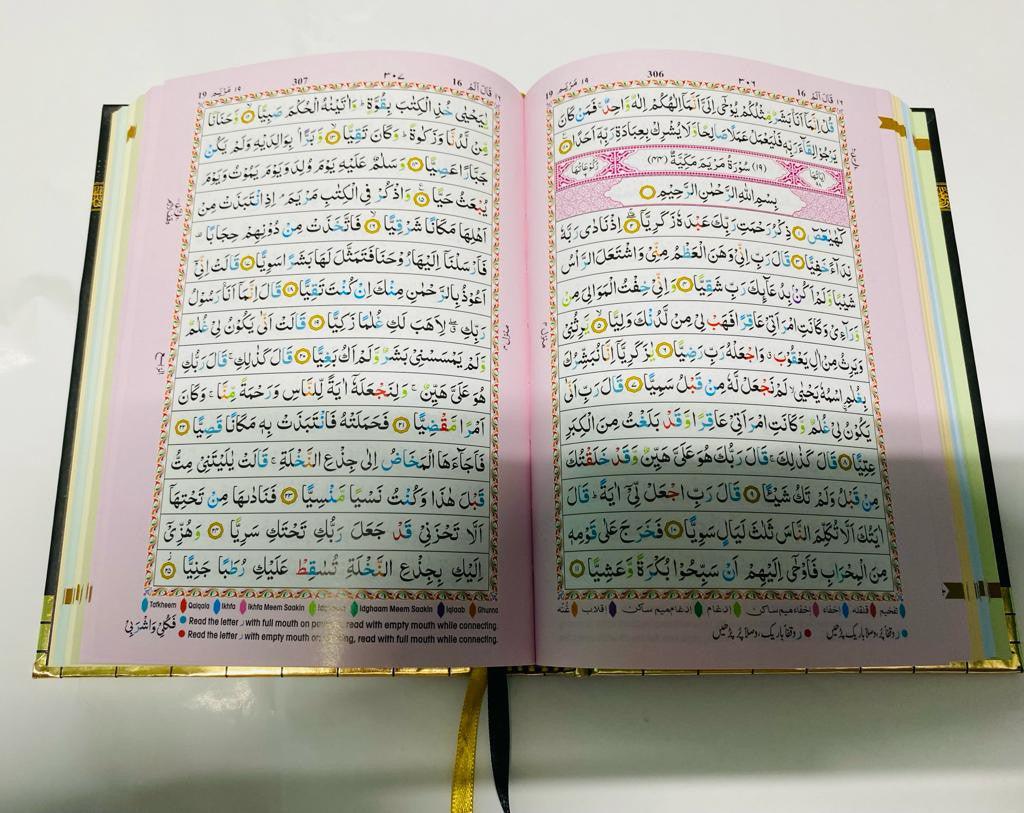 ١٦ قَالَ اَلَمْ
16
٣٠٦
306
١٩ مَرْيَم
19
قُلْ اِنَّمَاۤ اَنَا بَشَرٌ مِّثْلُكُمْ يُوْحٰۤى اِلَيَّ اَنَّمَاۤ اِلٰهُكُمْ اِلٰهٌ وَّاحِدٌ ۚ فَمَنْ كَانَ
يَرْجُوْا لِقَآءَ رَبِّهٖ فَلْيَعْمَلْ عَمَلًا صَالِحًا وَّلَا يُشْرِكْ بِعِبَادَةِ رَبِّهٖۤ اَحَدًا
(١٩) سُوْرَةُ مَرْيَمَ مَكِّيَّةٌ (٤٤)
بِسْمِ اللّٰهِ الرَّحْمٰنِ الرَّحِيْمِ
كٓهٰيٰعٓصٓ ١ ذِكْرُ رَحْمَتِ رَبِّكَ عَبْدَهٗ زَكَرِيَّا ٢ اِذْ نَادٰى رَبَّهٗ
نِدَآءً خَفِيًّا ٣ قَالَ رَبِّ اِنِّيْ وَهَنَ الْعَظْمُ مِنِّيْ وَاشْتَعَلَ الرَّاْسُ
شَيْبًا وَّلَمْ اَكُنْۢ بِدُعَآئِكَ رَبِّ شَقِيًّا ٤ وَاِنِّيْ خِفْتُ الْمَوَالِيَ مِنْ
وَّرَآءِيْ وَكَانَتِ امْرَاَتِيْ عَاقِرًا فَهَبْ لِيْ مِنْ لَّدُنْكَ وَلِيًّا ٥ يَّرِثُنِيْ
وَيَرِثُ مِنْ اٰلِ يَعْقُوْبَ ۖ وَاجْعَلْهُ رَبِّ رَضِيًّا ٦ يٰزَكَرِيَّاۤ اِنَّا نُبَشِّرُكَ
بِغُلٰمِ ۨاسْمُهٗ يَحْيٰى ۙ لَمْ نَجْعَلْ لَّهٗ مِنْ قَبْلُ سَمِيًّا ٧ قَالَ رَبِّ اَنّٰى
يَكُوْنُ لِيْ غُلٰمٌ وَّكَانَتِ امْرَاَتِيْ عَاقِرًا وَّقَدْ بَلَغْتُ مِنَ الْكِبَرِ
عِتِيًّا ٨ قَالَ كَذٰلِكَ ۚ قَالَ رَبُّكَ هُوَ عَلَيَّ هَيِّنٌ وَّقَدْ خَلَقْتُكَ
مِنْ قَبْلُ وَلَمْ تَكُ شَيْئًا ٩ قَالَ رَبِّ اجْعَلْ لِّيْۤ اٰيَةً ؕ قَالَ
اٰيَتُكَ اَلَّا تُكَلِّمَ النَّاسَ ثَلٰثَ لَيَالٍ سَوِيًّا ١٠ فَخَرَجَ عَلٰى قَوْمِهٖ
مِنَ الْمِحْرَابِ فَاَوْحٰۤى اِلَيْهِمْ اَنْ سَبِّحُوْا بُكْرَةً وَّعَشِيًّا ١١
تفخيم قلقله اخفاء اخفاء ميم ساكن ادغام ادغام ميم ساكن اقلاب غنّه
ر وقفاً باریک، وصلاً پُر پڑھیں
ر وقفاً پُر، وصلاً باریک پڑھیں
١٦ قَالَ اَلَمْ
16
٣٠٧
307
١٩ مَرْيَم
19
يٰيَحْيٰى خُذِ الْكِتٰبَ بِقُوَّةٍ ؕ وَاٰتَيْنٰهُ الْحُكْمَ صَبِيًّا ١٢ وَّحَنَانًا
مِّنْ لَّدُنَّا وَزَكٰوةً ؕ وَكَانَ تَقِيًّا ١٣ وَّبَرًّاۢ بِوَالِدَيْهِ وَلَمْ يَكُنْ
جَبَّارًا عَصِيًّا ١٤ وَسَلٰمٌ عَلَيْهِ يَوْمَ وُلِدَ وَيَوْمَ يَمُوْتُ وَيَوْمَ
يُبْعَثُ حَيًّا ١٥ وَاذْكُرْ فِي الْكِتٰبِ مَرْيَمَ ۘ اِذِ انْتَبَذَتْ مِنْ
اَهْلِهَا مَكَانًا شَرْقِيًّا ١٦ فَاتَّخَذَتْ مِنْ دُوْنِهِمْ حِجَابًا
فَاَرْسَلْنَاۤ اِلَيْهَا رُوْحَنَا فَتَمَثَّلَ لَهَا بَشَرًا سَوِيًّا ١٧ قَالَتْ اِنِّيْۤ
اَعُوْذُ بِالرَّحْمٰنِ مِنْكَ اِنْ كُنْتَ تَقِيًّا ١٨ قَالَ اِنَّمَاۤ اَنَا رَسُوْلُ
رَبِّكِ ۖ لِاَهَبَ لَكِ غُلٰمًا زَكِيًّا ١٩ قَالَتْ اَنّٰى يَكُوْنُ لِيْ غُلٰمٌ
وَّلَمْ يَمْسَسْنِيْ بَشَرٌ وَّلَمْ اَكُ بَغِيًّا ٢٠ قَالَ كَذٰلِكِ ۚ قَالَ رَبُّكِ
هُوَ عَلَيَّ هَيِّنٌ ۚ وَلِنَجْعَلَهٗۤ اٰيَةً لِّلنَّاسِ وَرَحْمَةً مِّنَّا ۚ وَكَانَ
اَمْرًا مَّقْضِيًّا ٢١ فَحَمَلَتْهُ فَانْتَبَذَتْ بِهٖ مَكَانًا قَصِيًّا ٢٢
فَاَجَآءَهَا الْمَخَاضُ اِلٰى جِذْعِ النَّخْلَةِ ۚ قَالَتْ يٰلَيْتَنِيْ مِتُّ
قَبْلَ هٰذَا وَكُنْتُ نَسْيًا مَّنْسِيًّا ٢٣ فَنَادٰىهَا مِنْ تَحْتِهَاۤ
اَلَّا تَحْزَنِيْ قَدْ جَعَلَ رَبُّكِ تَحْتَكِ سَرِيًّا ٢٤ وَهُزِّيْۤ
اِلَيْكِ بِجِذْعِ النَّخْلَةِ تُسٰقِطْ عَلَيْكِ رُطَبًا جَنِيًّا ٢٥
فَكُلِيْ وَاشْرَبِيْ
Tafkheem Qalqala Ikhfa Ikhfa Meem Saakin Idghaam Meem Saakin Iqlaab Ghunna
Read the letter ر with full mouth on read with empty mouth while connecting.
Read the letter ر with empty mouth on read with full mouth while connecting.